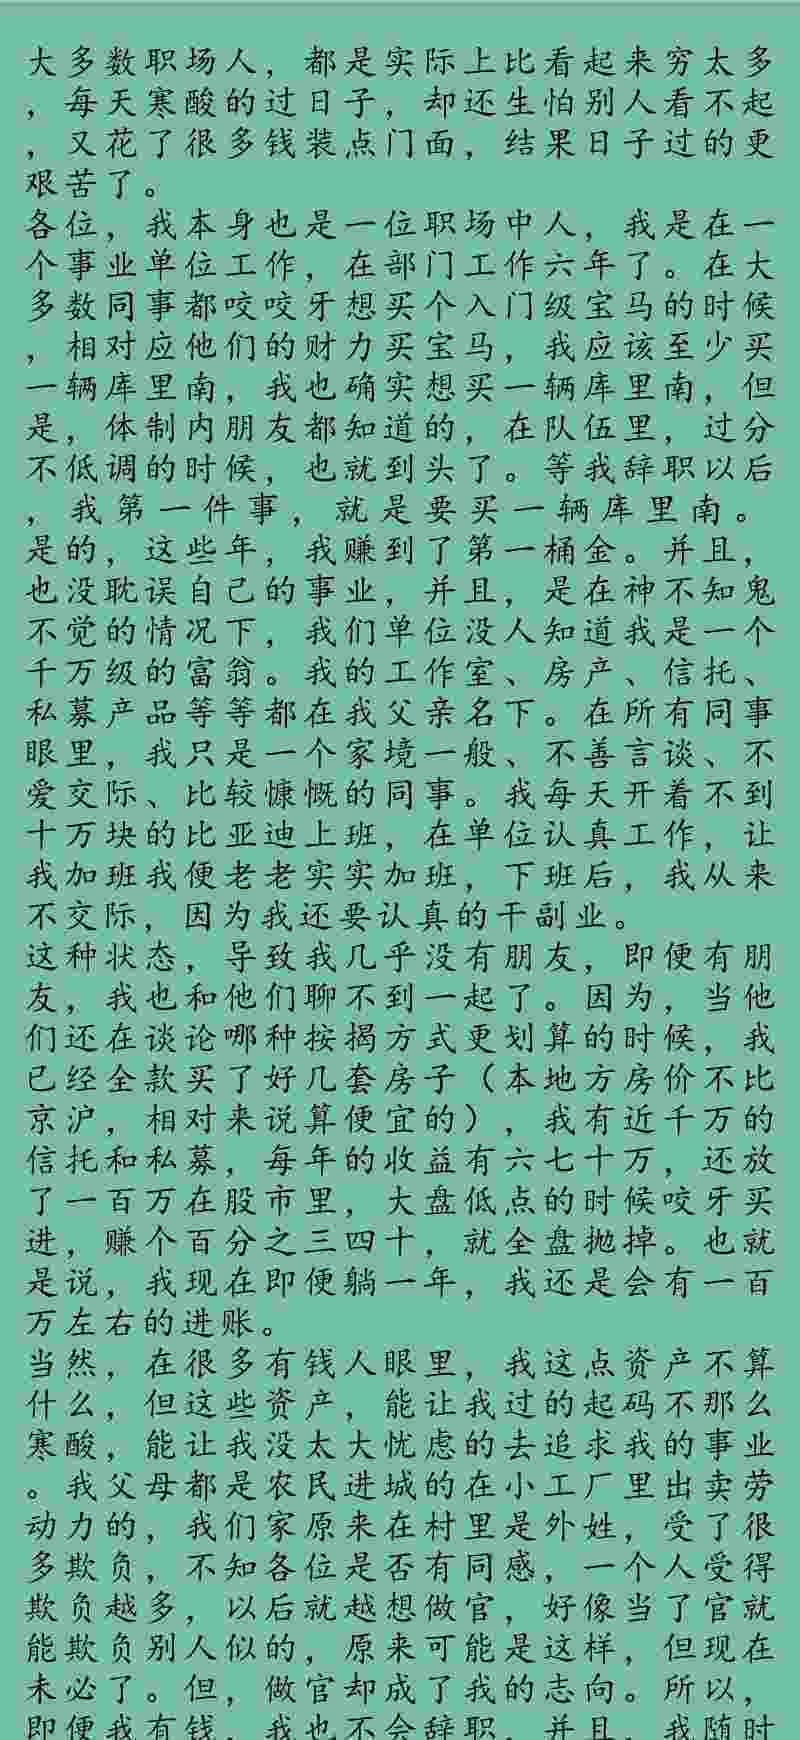 大多数职场人，都是实际上比看起来穷太多
，每天寒酸的过日子，却还生怕别人看不起
，又花了很多钱装点门面，结果日子过的更
艰苦了。
各位，我本身也是一位职场中人，我是在一
个事业单位工作，在部门工作六年了。在大
多数同事都咬咬牙想买个入门级宝马的时候
，相对应他们的财力买宝马，我应该至少买
一辆库里南，我也确实想买一辆库里南，但
是，体制内朋友都知道的，在队伍里，过分
不低调的时候，也就到头了。等我辞职以后
，我第一件事，就是要买一辆库里南。
是的，这些年，我赚到了第一桶金。并且，
也没耽误自己的事业，并且，是在神不知鬼
不觉的情况下，我们单位没人知道我是一个
千万级的富翁。我的工作室、房产、信托、
私募产品等等都在我父亲名下。在所有同事
眼里，我只是一个家境一般、不善言谈、不
爱交际、比较慷慨的同事。我每天开着不到
十万块的比亚迪上班，在单位认真工作，让
我加班我便老老实实加班，下班后，我从来
不交际，因为我还要认真的干副业。
这种状态，导致我几乎没有朋友，即便有朋
友，我也和他们聊不到一起了。因为，当他
们还在谈论哪种按揭方式更划算的时候，我
已经全款买了好几套房子（本地方房价不比
京沪，相对来说算便宜的），我有近千万的
信托和私募，每年的收益有六七十万，还放
了一百万在股市里，大盘低点的时候咬牙买
进，赚个百分之三四十，就全盘抛掉。也就
是说，我现在即便躺一年，我还是会有一百
万左右的进账。
当然，在很多有钱人眼里，我这点资产不算
什么，但这些资产，能让我过的起码不那么
寒酸，能让我没太大忧虑的去追求我的事业
。我父母都是农民进城的在小工厂里出卖劳
动力的，我们家原来在村里是外姓，受了很
多欺负，不知各位是否有同感，一个人受得
欺负越多，以后就越想做官，好像当了官就
能欺负别人似的，原来可能是这样，但现在
未必了。但，做官却成了我的志向。所以，
即便我有钱，我也不会辞职，并且，我随时